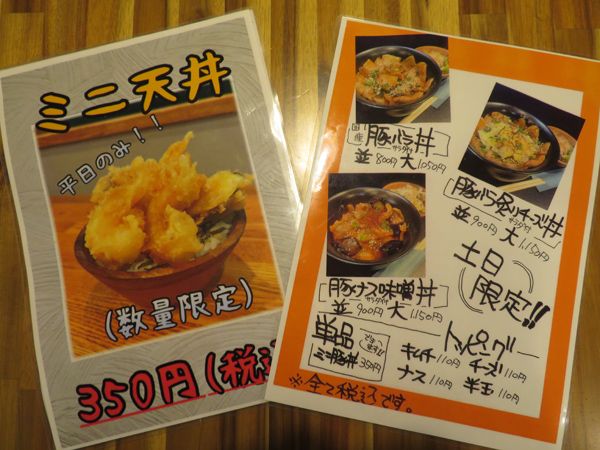 ミニ天丼
平日のみ!!
(数量限定)
350円(税込
国産 豚バラ丼
サラダ付
並 800円 大 1,050円
豚バラ炙りチーズ丼
サラダ付
並 900円 大 1,150円
豚ナス味噌丼
サラダ付
並 900円 大 1,150円
土日
限定!!
単品
できます!!
ミニ豚丼 350円
トッピング
キムチ 110円 チーズ 110円
ナス 110円 半玉 110円
※全て税込です。